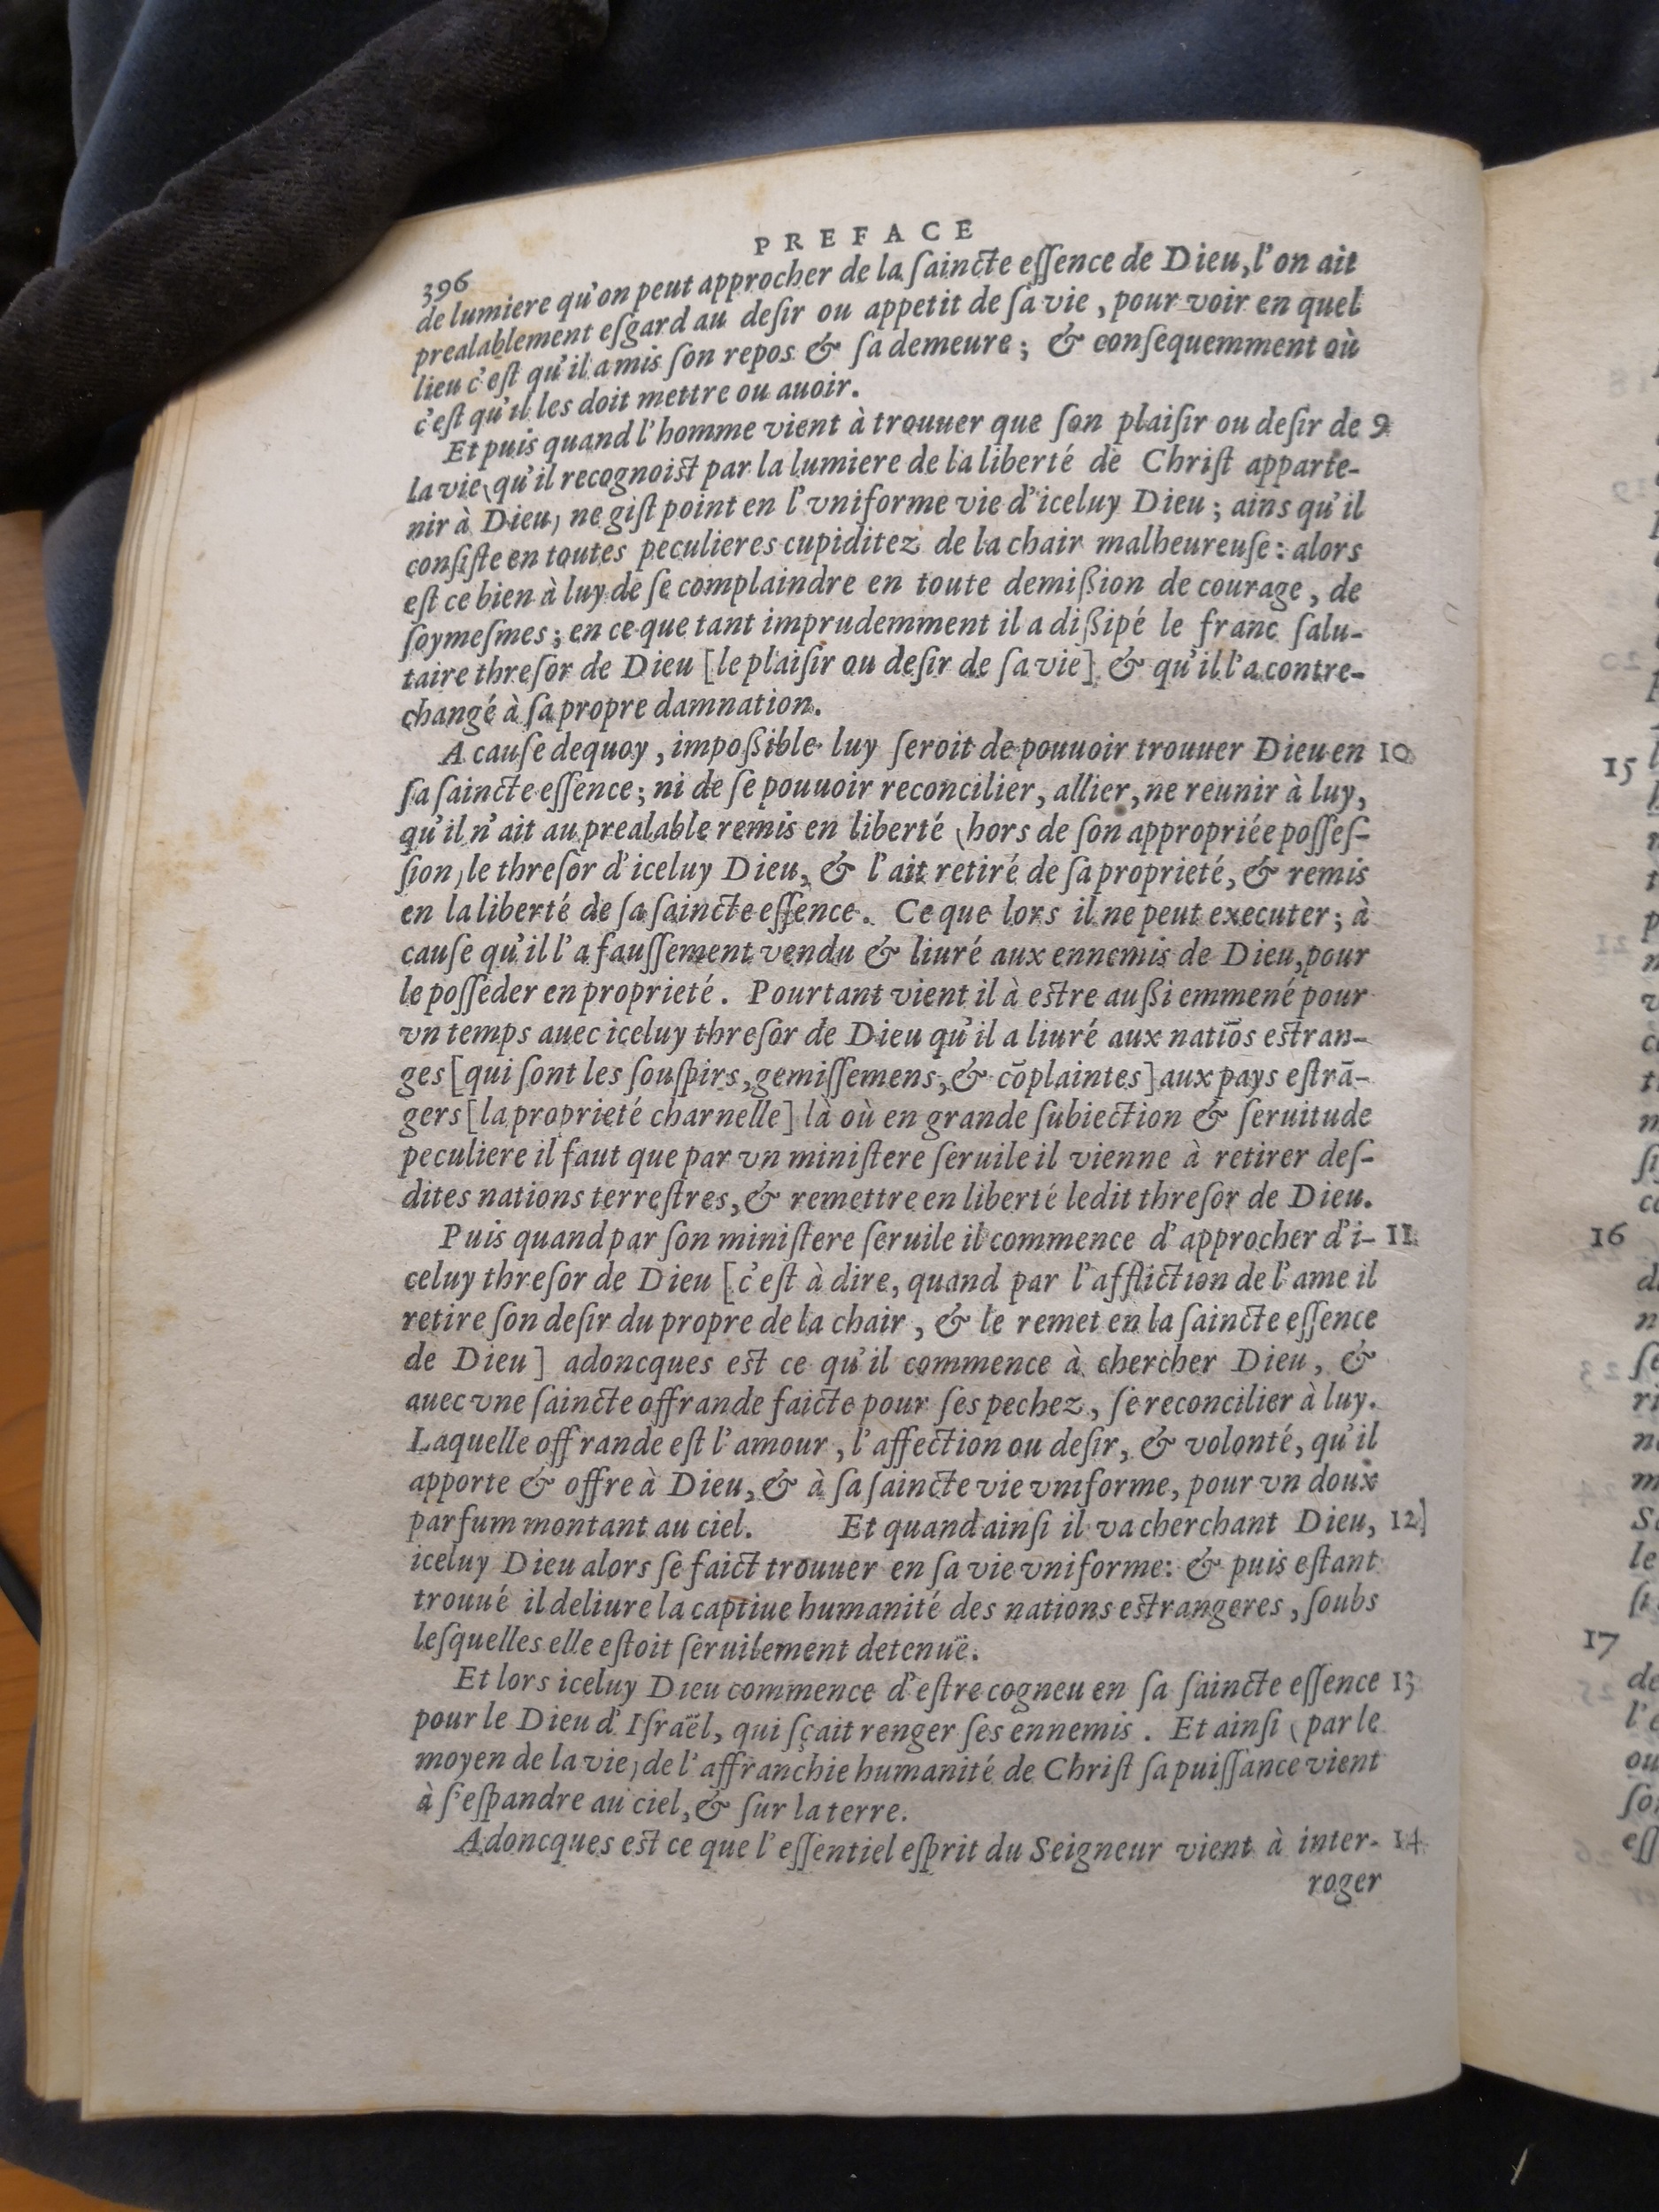 PREFACE
396
de lumiere qu'on peut approcher de la ſaincte eſſence de Dieu, l'on ait
prealablement eſgard au deſir ou appetit de ſa vie, pour voir en quel
lieu c'eſt qu'il a mis ſon repos & ſa demeure; & conſequemment où
c'eſt qu'il les doit mettre ou auoir.
Et puis quand l'homme vient à trouuer que ſon plaiſir ou deſir de 9
la vie (qu'il recognoist par la lumiere de la liberté de Chriſt apparte-
nir à Dieu) ne giſt point en l'vniforme vie d'iceluy Dieu; ains qu'il
conſiſte en toutes peculieres cupiditez de la chair malheureuſe: alors
eſt ce bien à luy de ſe complaindre en toute demiſsion de courage, de
ſoymeſmes; en ce que tant imprudemment il a diſsipé le franc ſalu-
taire threſor de Dieu [le plaiſir ou deſir de ſa vie] & qu'il l'a contre-
changé à ſa propre damnation.
A cauſe dequoy, impoſsible luy ſeroit de pouuoir trouuer Dieu en 10
ſa ſaincte eſſence; ni de ſe pouuoir reconcilier, allier, ne reunir à luy,
qu'il n'ait au prealable remis en liberté (hors de ſon appropriée poſſeſ-
ſion) le threſor d'iceluy Dieu, & l'ait retiré de ſa proprieté, & remis
en la liberté de ſa ſaincte eſſence. Ce que lors il ne peut executer; à
cauſe qu'il l'a fauſſement vendu & liuré aux ennemis de Dieu, pour
le poſſeder en proprieté. Pourtant vient il à estre auſsi emmené pour
vn temps auec iceluy threſor de Dieu qu'il a liuré aux natiōs estran-
ges [qui ſont les ſouſpirs, gemiſſemens, & cōplaintes] aux pays eſtrā-
gers [la proprieté charnelle] là où en grande ſubiection & ſeruitude
peculiere il faut que par vn miniſtere ſeruile il vienne à retirer deſ-
dites nations terreſtres, & remettre en liberté ledit threſor de Dieu.
Puis quand par ſon miniſtere ſeruile il commence d'approcher d'i- 11
celuy threſor de Dieu [c'eſt à dire, quand par l'affliction de l'ame il
retire ſon deſir du propre de la chair, & le remet en la ſaincte eſſence
de Dieu] adoncques est ce qu'il commence à chercher Dieu, &
auec vne ſaincte offrande faicte pour ſes pechez, ſe reconcilier à luy.
Laquelle offrande eſt l'amour, l'affection ou deſir, & volonté, qu'il
apporte & offre à Dieu, & à ſa ſaincte vie vniforme, pour vn doux
parfum montant au ciel. Et quand ainſi il va cherchant Dieu, 12]
iceluy Dieu alors ſe faict trouuer en ſa vie vniforme: & puis eſtant
trouué il deliure la captiue humanité des nations estrangeres, ſoubs
leſquelles elle eſtoit ſeruilement detenuë.
Et lors iceluy Dieu commence d'eſtre cogneu en ſa ſaincte eſſence 13
pour le Dieu d'Iſraël, qui ſçait renger ſes ennemis. Et ainſi (par le
moyen de la vie) de l'affranchie humanité de Chriſt ſa puiſſance vient
à ſ'eſpandre au ciel, & ſur la terre.
Adoncques est ce que l'eſſentiel eſprit du Seigneur vient à inter- 14
roger
15
16
17